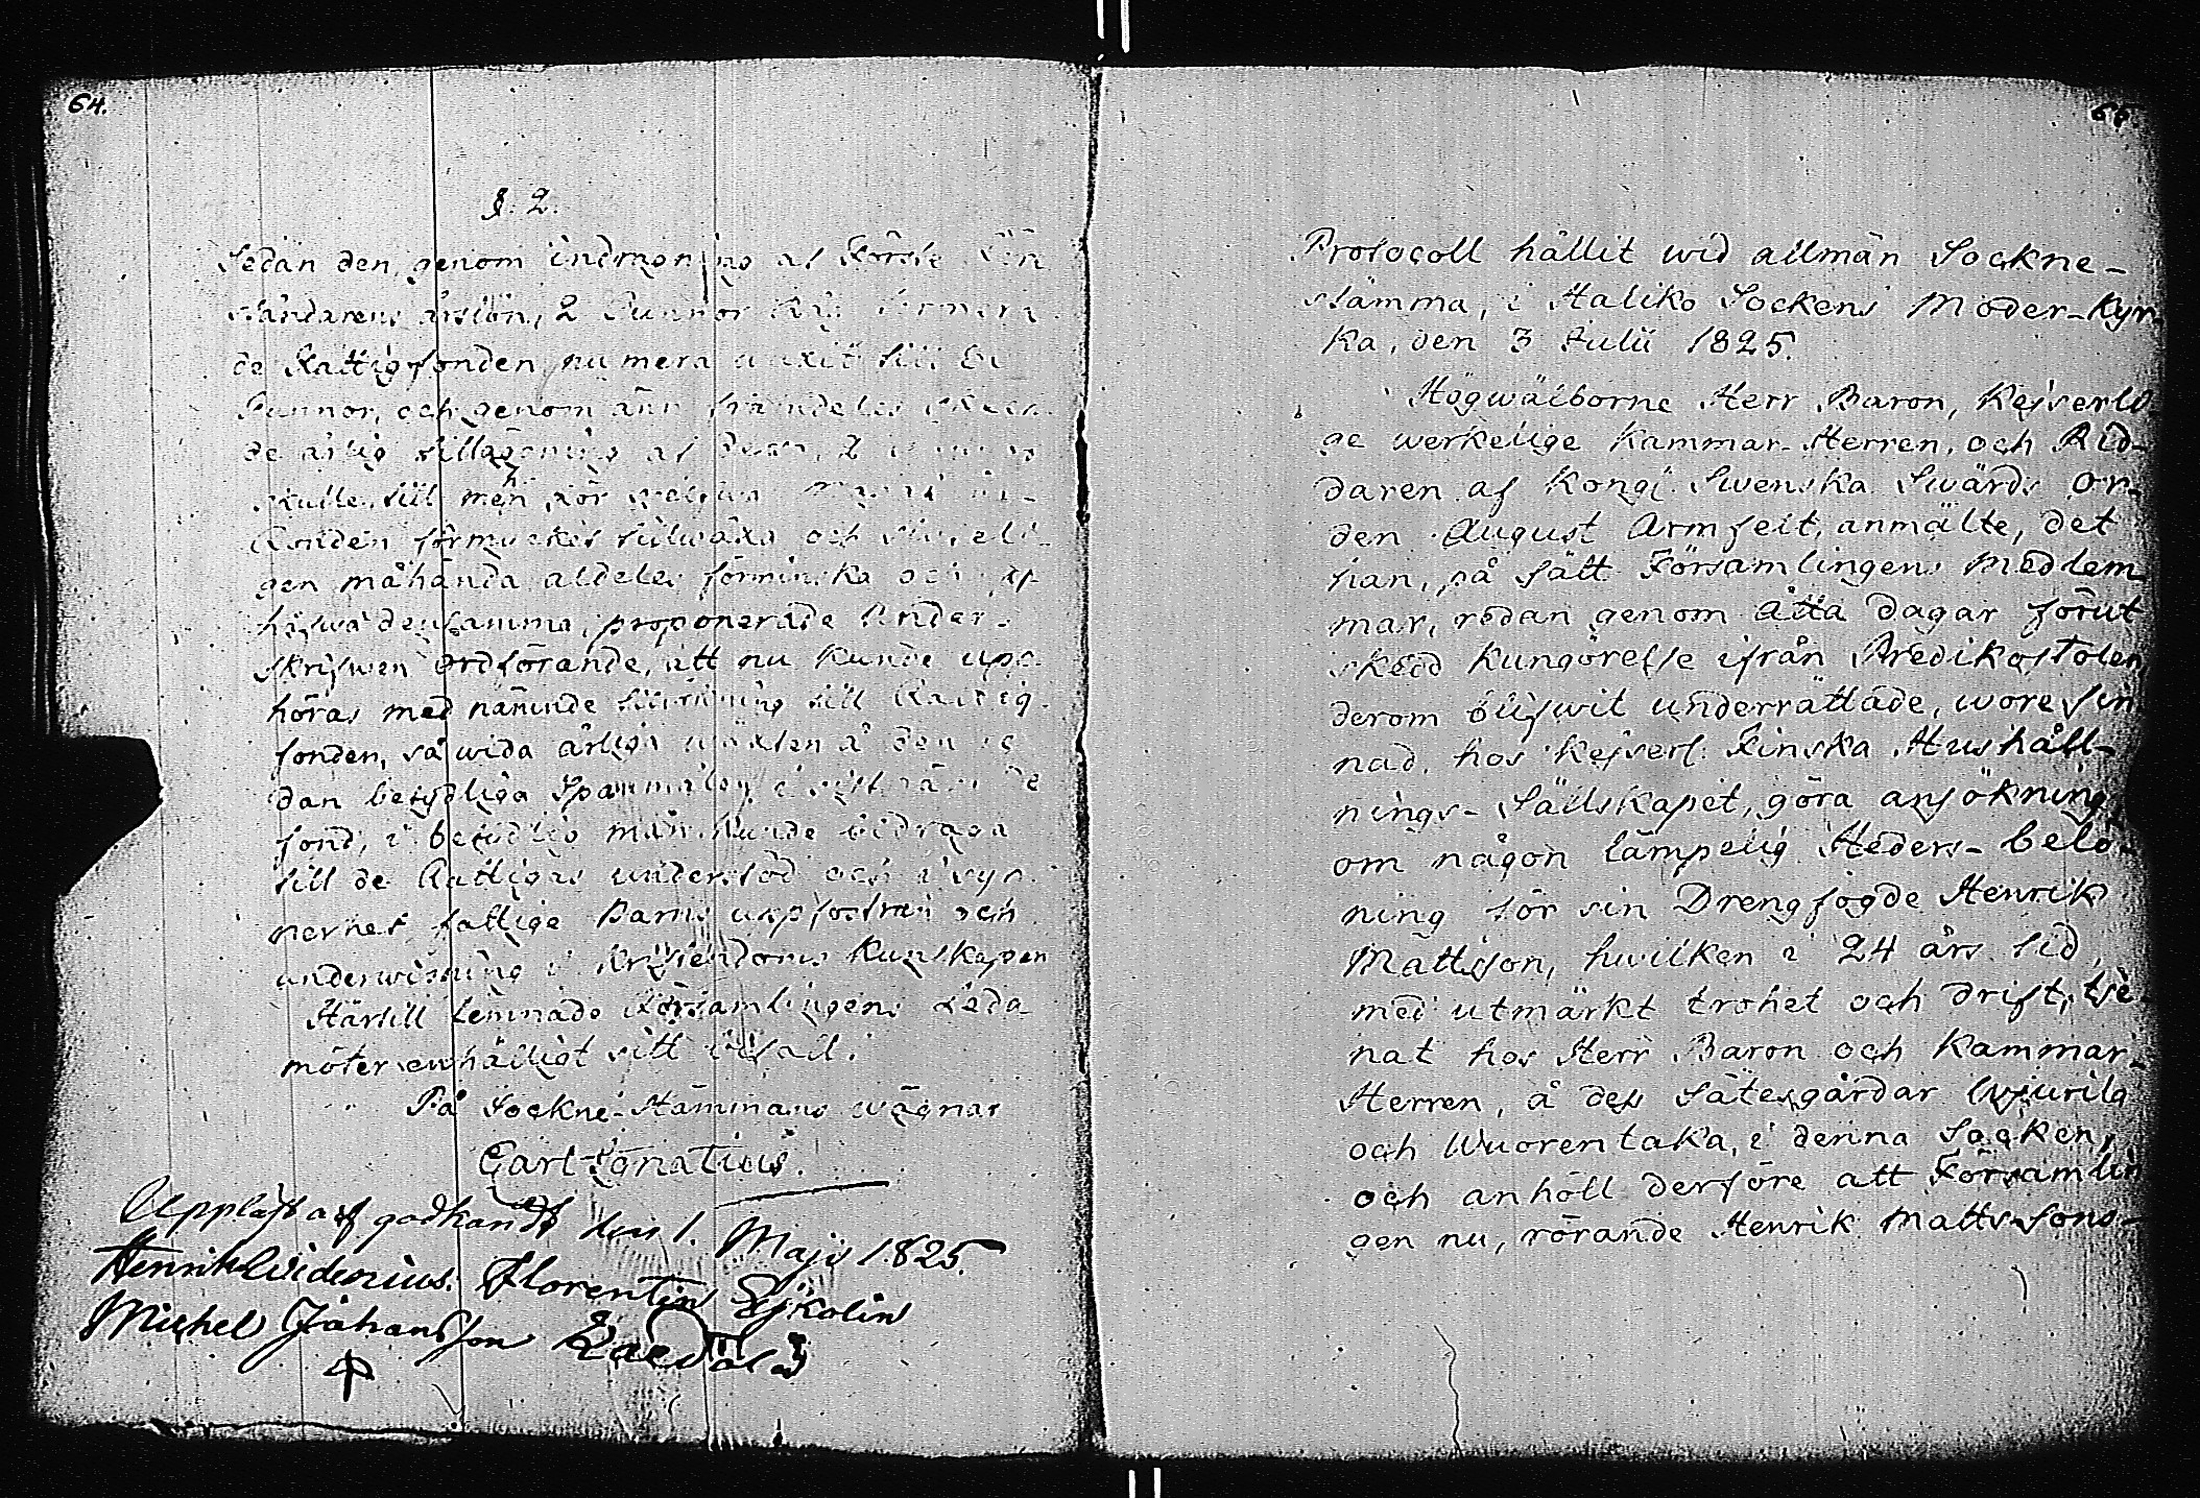 64.
§. 2.
Sedan den, genom indragning af Förste
årslön, 2 Tunnor Råg
de Fattigfonden nu mera wäxit till
Tunnor, och genom än framdeles
de årlig tilläggning af dessa, 2
skulle till men för
fonden förmycket tillwäxa och
gen måhända aldeles förminska och up
häfwa densamma, proponerade Under-
skrifwen Ordförande, att nu kunde upp-
höras med nämnde tillökning till Fattig-
fonden, så wida årliga wäxten å den re
dan betydliga Spannmåls
fond, i betydlig mån kunde bidraga
till de Fattigas understöd och i syn
nerhet fattige Barns uppfostran och
underwisning i Kristendoms Kunskapen
Härtill lemnade Församlingens Leda
möter enhälligt sitt bifall.
På Sockne-Stämmans wägnar
Carl Ignatius.
Uppläst och godkändt den 1. Maji 1825.
Henrik Widenius. Florentin Sjkolin
Michel Johansson
65
Protocoll hållit wid allmän Sockne-
stämma, i Haliko Sockens Moder-Kyr-
ka, den 3 Julii 1825.
Högwälborne Herr Baron, Kejserli
ge werkelige Kammar-Herren, och Rid-
daren af Kongl. Swenska Swärds Or-
den August Armfelt, anmälte, det
han, på sätt Församlingens Medlem-
mar, redan genom åtta dagar förut
skedd kungörelse ifrån Predikostolen
derom blifwit underrättade, wore sin
nad, hos Kejserl. Finska Hushåll-
nings-Sällskapet, göra ansökning
om någon lämpelig Heders-belö-
ning för sin Drengfogde Henrik
Mattsson, hwilken i 24 års tid,
med utmärkt trohet och drift, tje-
nat hos Herr Baron och Kammar-
Herren, å dess Sätesgårdar Wiurila
och Wuorentaka, i denna Socken,
och anhöll derföre att Församlin
gen nu, rörande Henrik Matts-Sons-